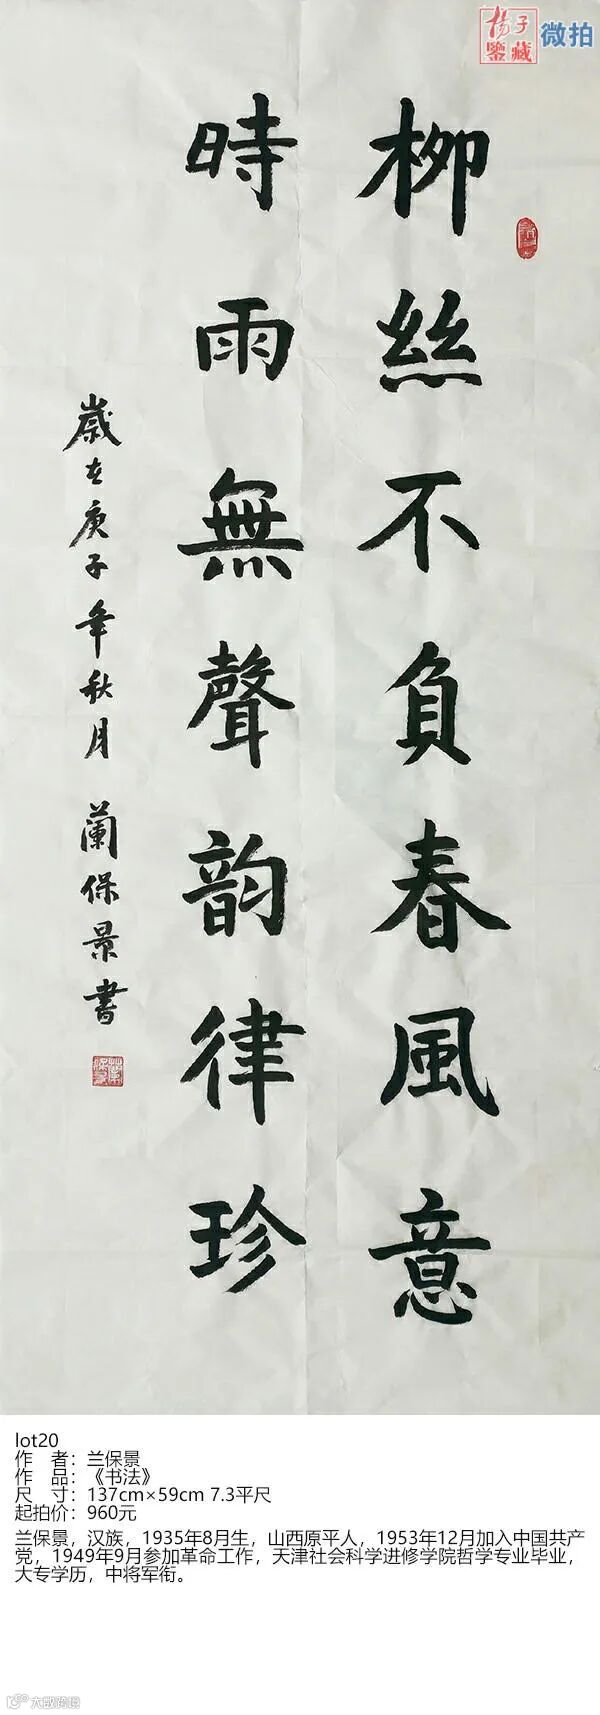 揚子
鑒藏
微拍
柳絲不負春風意
時雨無聲韵律珍
歲在庚子年秋月 蘭保景書
lot20
作 者：兰保景
作 品：《书法》
尺 寸：137cm×59cm 7.3平尺
起拍价：960元
兰保景，汉族，1935年8月生，山西原平人，1953年12月加入中国共产
党，1949年9月参加革命工作，天津社会科学进修学院哲学专业毕业，
大专学历，中将军衔。
大数跨境